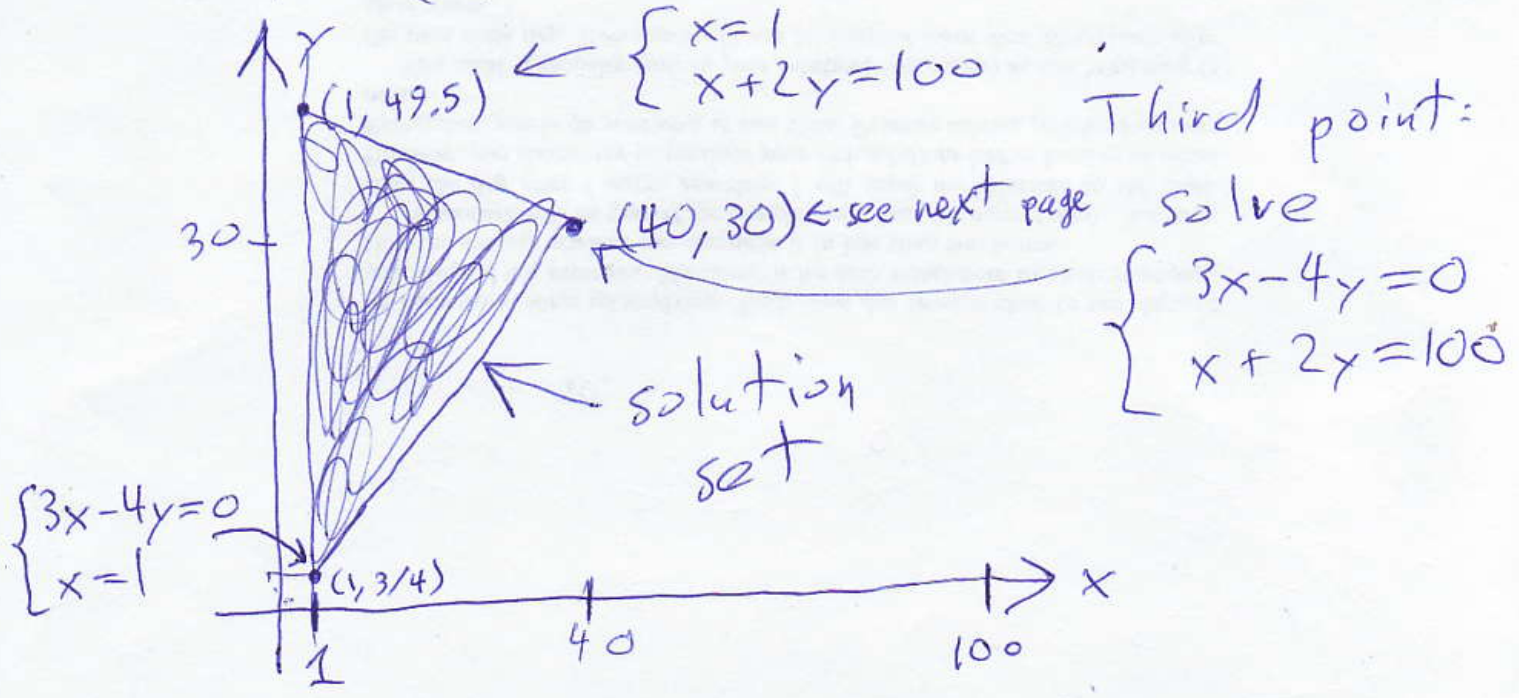 Y
{ x=1
x+2y=100
(1, 49,5)
Third point:
solve
{ 3x-4y=0
x+2y=100
30
(40, 30) ← see next page
solution
set
{ 3x-4y=0
x=1
(1, 3/4)
x
1
40
100